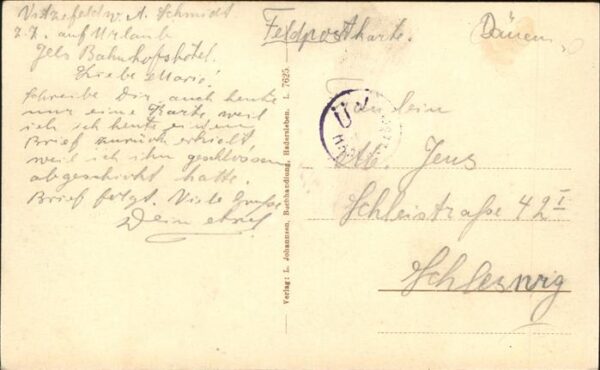 Vizefeldw. A. Schmidt
z. Z. auf Urlaub
Jels Bahnhofshotel.
Liebe Marie!
Schreibe Dir auch heute
nur eine Karte, weil
ich heute einen
Brief zurück erhielt,
weil ich ihn geschlossen
abgeschickt hatte.
Brief folgt. Viele Grüße
Dein
Verlag: L. Johannsen, Buchhandlung, Hadersleben. L. 7625.
Feldpostkarte.
Fräulein
Jens
Schleistraße 42 I
Schleswig